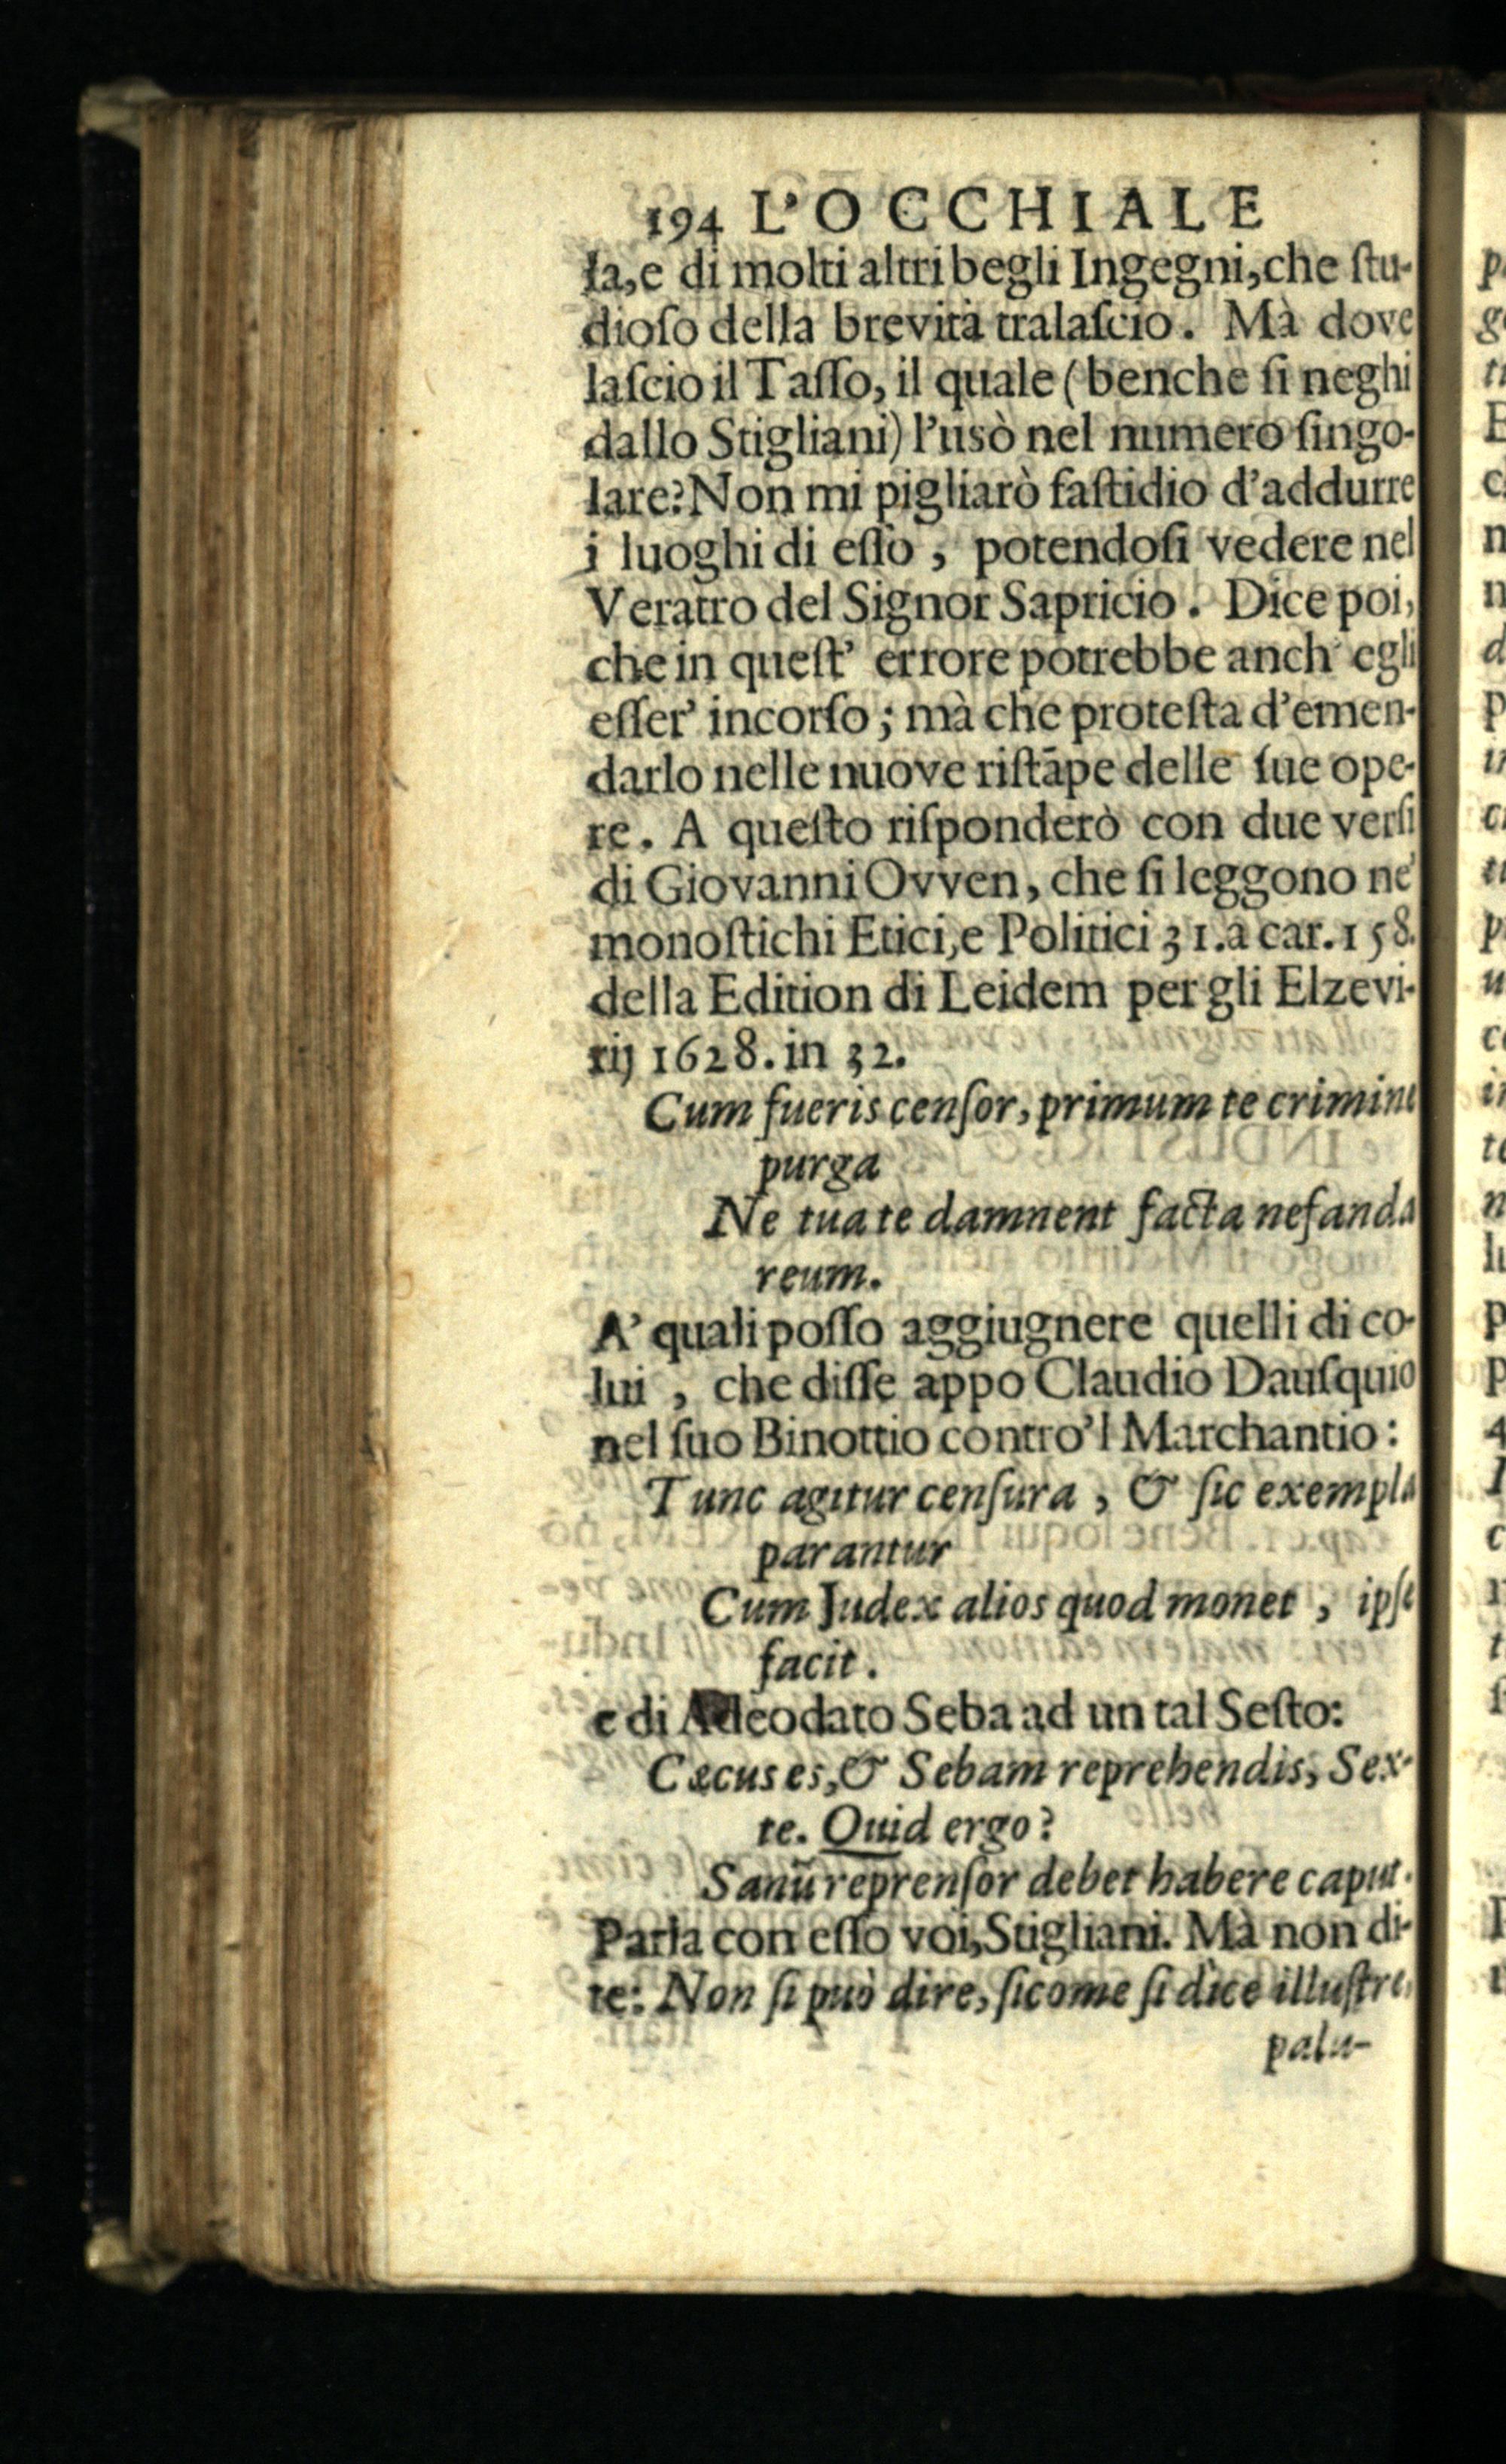 194 L'OCCHIALE
la, e di molti altri begli Ingegni, che ſtu-
dioſo della brevità tralaſcio. Mà dove
laſcio il Taſſo, il quale (benche ſi neghi
dallo Stigliani) l'usò nel numero ſingo-
lare? Non mi pigliarò faſtidio d'addurre
i luoghi di eſſo, potendoſi vedere nel
Veratro del Signor Sapricio. Dice poi,
che in queſt' errore potrebbe anch' egli
eſſer' incorſo; mà che proteſta d'emen-
darlo nelle nuove riſtāpe delle ſue ope-
re. A queſto riſponderò con due verſi
di Giovanni Ovven, che ſi leggono ne'
monoſtichi Etici, e Politici 31. a car. 158.
della Edition di Leidem per gli Elzevi-
rij 1628. in 32.
Cum fueris cenſor, primum te crimine
purga
Ne tua te damnent facta nefanda
reum.
A' quali poſſo aggiugnere quelli di co-
lui, che diſſe appo Claudio Dauſquio
nel ſuo Binottio contro'l Marchantio:
Tunc agitur cenſura, & ſic exempla
parantur
Cum Judex alios quod monet, ipſe
facit.
e di Adeodato Seba ad un tal Seſto:
Cæcus es, & Sebam reprehendis, Sex-
te. Quid ergo?
Sanū reprenſor debet habere caput.
Parla con eſſo voi, Stigliani. Mà non di-
te: Non ſi può dire, ſicome ſi dice illuſtre,
palu-